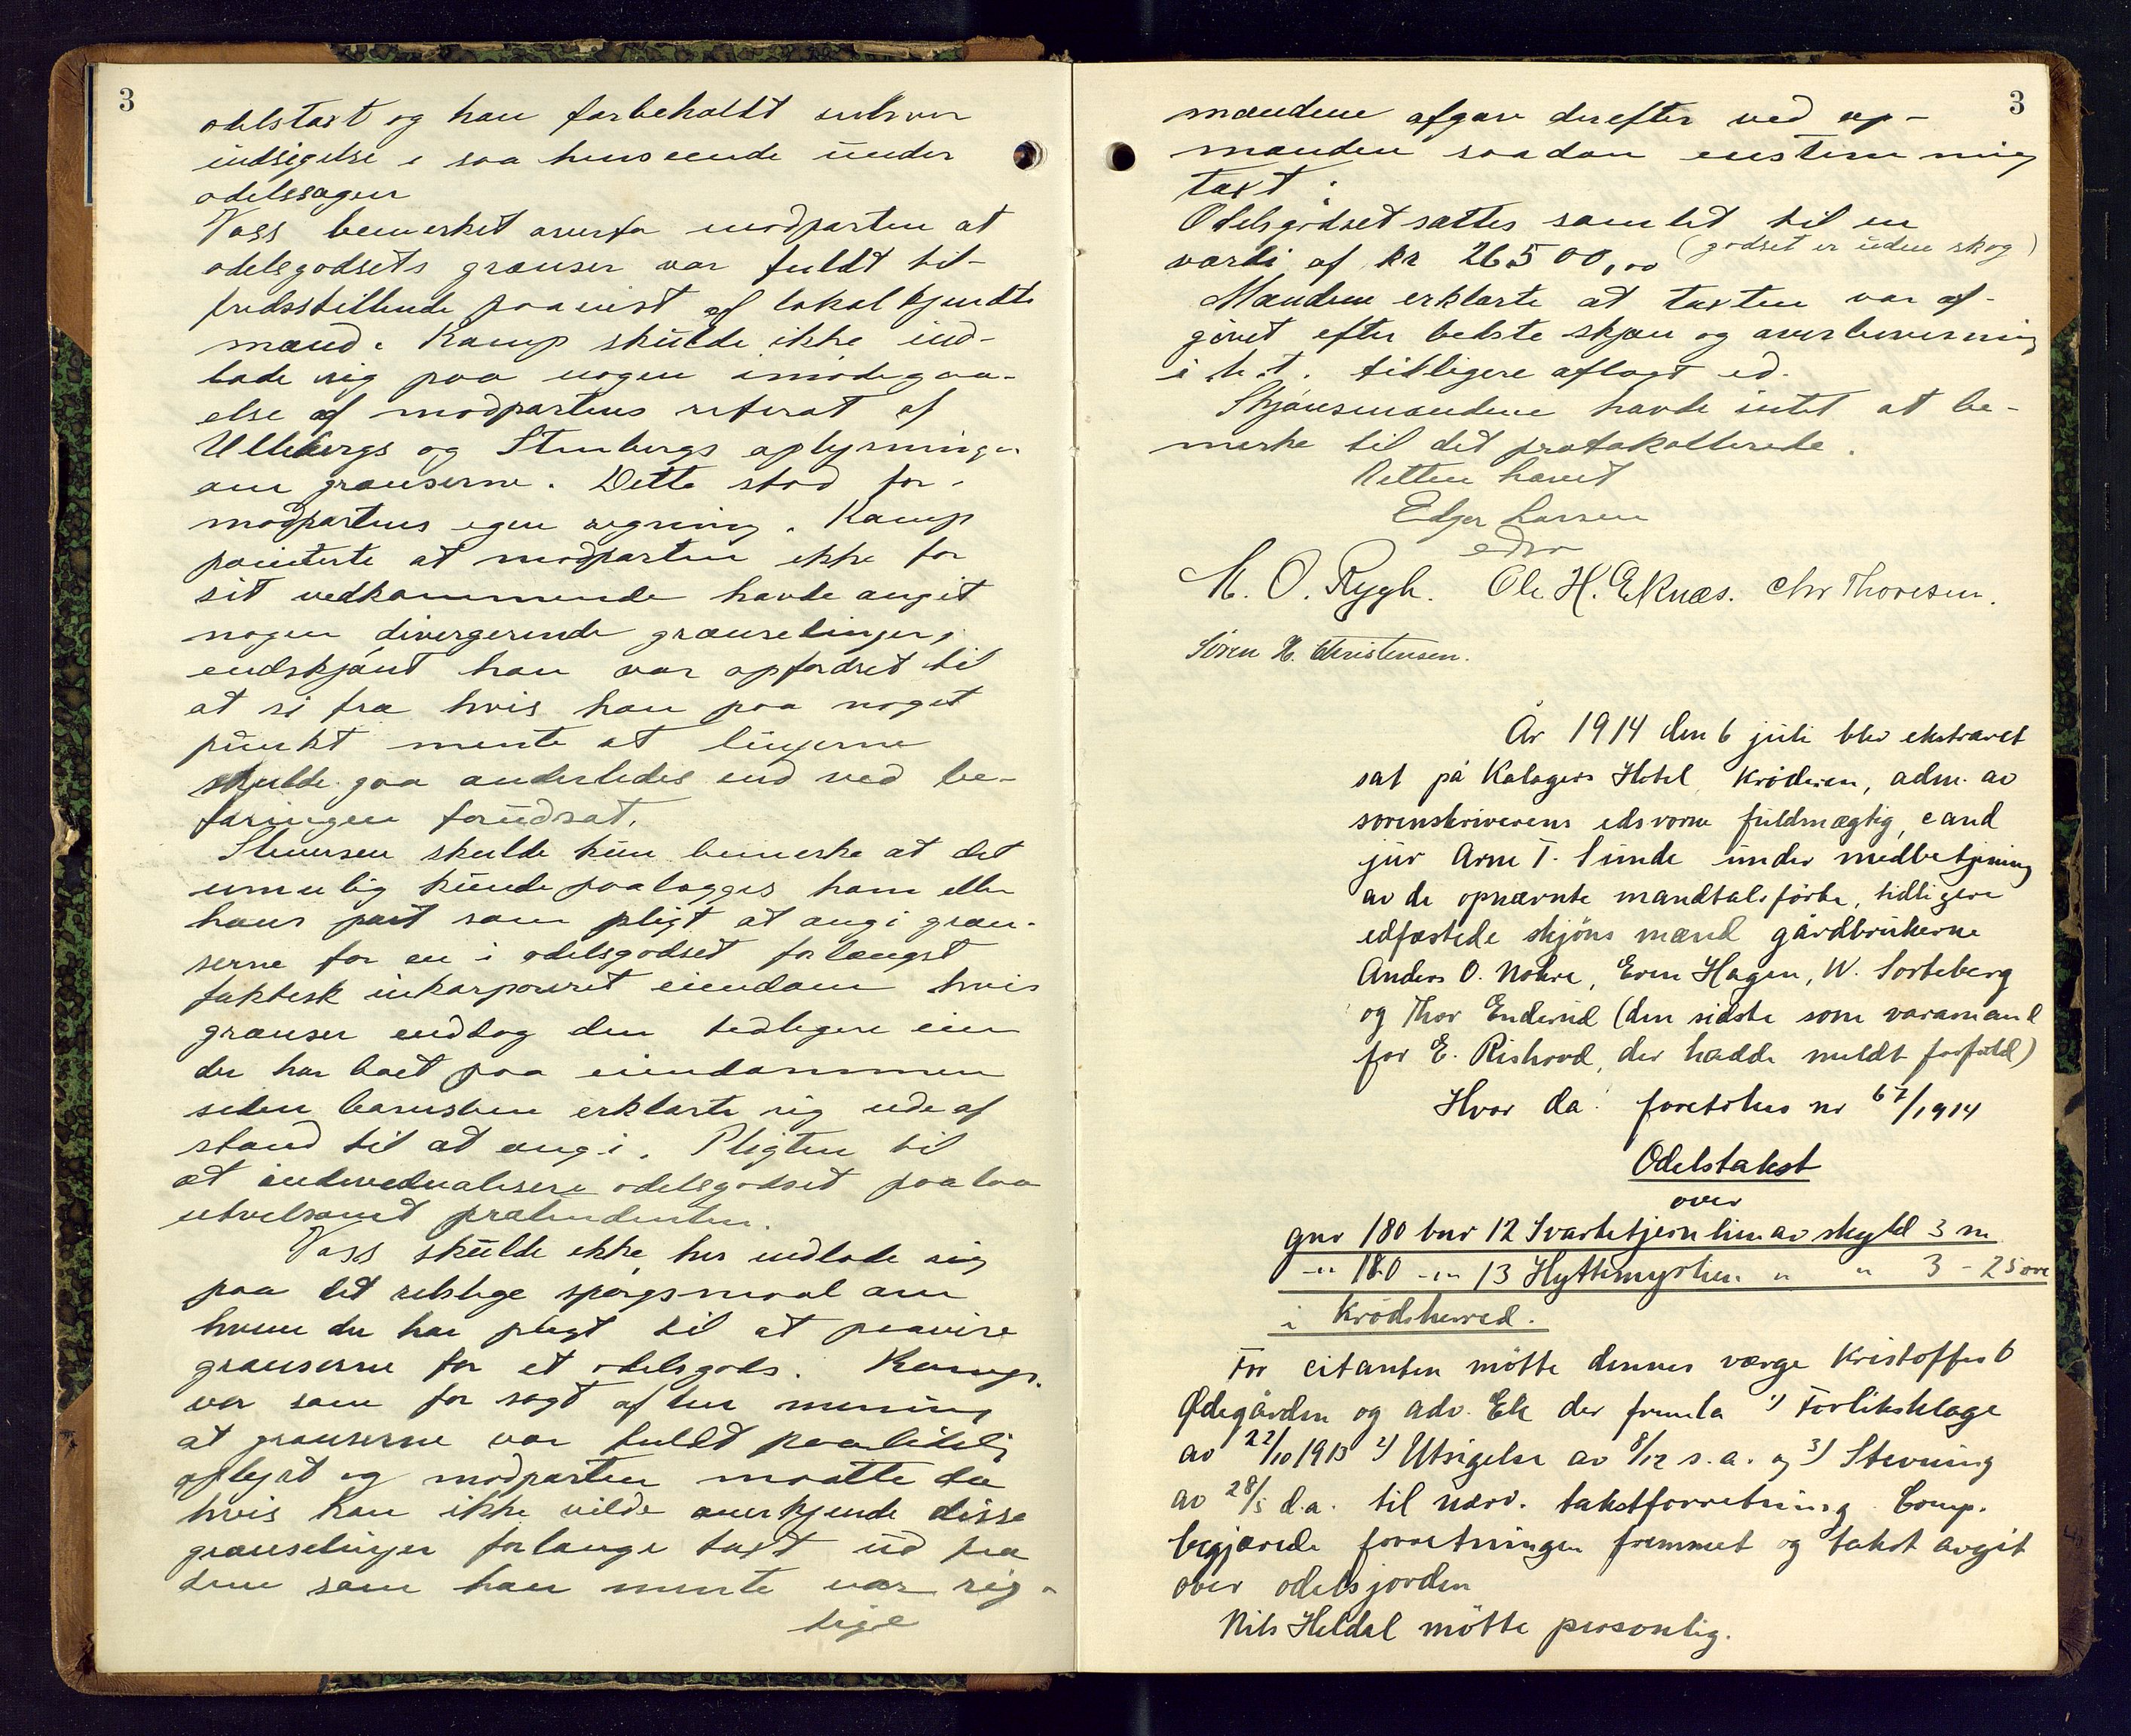 3
odelstaxt og han forbeholdt enhver
indsigelse i saa henseende under
odelssagen
Voss bemerket overfor modparten at
odelsgodsets grænser var fuldt til-
fredsstillende paavist af lokalkjendte
mænd. Kamp skulde ikke ind-
lade sig paa nogen imødegaa-
else af modpartens referat af
Ullebergs og Stenbergs oplysninger
om grænserne. Dette stod for
modpartens egen regning. Kamp
pointerte at modparten ikke for
sit vedkommende havde angit
nogen divergerende grænselinjer,
endskjønt han var opfordret til
at si fra hvis han paa noget
punkt mente at linjerne
skulde gaa anderledes end ved be-
faringen forudsat.
Steensen skulde kun bemerke at det
umulig kunde paalægges ham eller
hans part som pligt at angi græn-
serne for en i odelsgodset forlængst
faktisk inkorporeret eiendom hvis
grænser endog den tidligere eier
der har boet paa eiendommen
siden barnsben erklærte sig ude af
stand til at angi. Pligten til
at individualisere odelsgodset paalaa
utvilsomt prætendenten.
Voss skulde ikke her indlade sig
paa det retslige spørgsmaal om
hvem der har pligt til at paavise
grænserne for et odelsgods. Kamp
var som før sagt af den mening
at grænserne var fuldt paalitelig
oplyst og modparten maatte da
hvis han ikke vilde anerkjende disse
grænselinjer forlange taxt ud fra
dem som han mente var rig-
tige
3
mændene afgav derefter ved op-
manden saadan enstemmig
taxt:
Odelsgodset sættes samlet til en
værdi af kr 26500,00 (godset er uden skog)
Mændene erklærte at taxten var af-
givet efter bedste skjøn og overbevisning
i h. t. tidligere aflagt ed.
Skjønsmændene havde intet at be-
merke til det protokollerede.
Retten hævet
Edgar Larsen
edsv
M. O. Rygh. Ole H. Eknæs. Chr Thoresen.
Søren H. Christensen.
År 1914 den 6 juli blev ekstraret
sat på Kalagers Hotel Krøderen, adm. av
sorenskriverens edsvorne fuldmægtig, cand
jur Arne T. Sunde under medbetjening
av de opnævnte mandtalsførte, tidligere
edfæstede skjøns mænd gårdbrukerne
Anders O. Nohre, Even Hagen, W. Sorteberg
og Thor Enderud (den sidste som varamand
for E. Rishovd, der hadde meldt forfald)
Hvor da: foretokes nr 67/1914
Odelstakst
over
gnr 180 bnr 12 Svartetjernlien av skyld 3 m
-"- 180 -"- 13 Hyttemyrhen " " 3 - 25 øre
i Krødsherred.
For citanten møtte dennes værge Kristoffer O
Ødegården og adv. Ek der fremla 1) Forliksklage
av 22/10 1913 2) Utsigelse av 8/12 s.a. og 3) Stevning
av 28/5 d.a. til nærv. takstforretning. Comp.
begjærede forretningen fremmet og takst avgit
over odelsjorden
Nils Heldal møtte personlig.